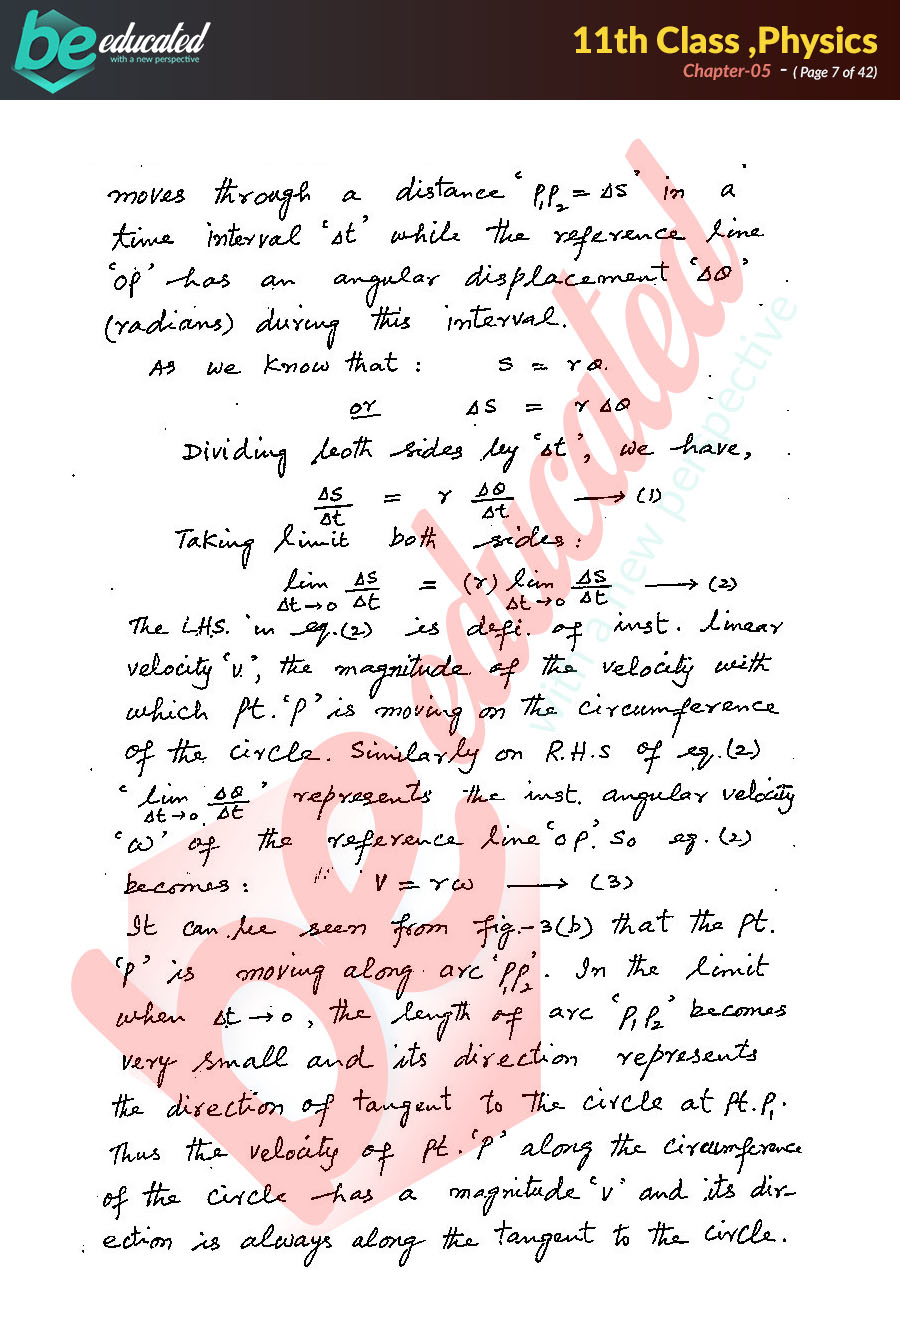 be educated
with a new perspective
11th Class ,Physics
Chapter-05 - ( Page 7 of 42)
moves through a distance ‘P₁P₂ = ΔS’ in a
time interval ‘Δt’ while the reference line
‘OP’ has an angular displacement ‘Δθ’
(radians) during this interval.
As we know that : S = rθ.
or ΔS = rΔθ
Dividing both sides by ‘Δt’, we have,
ΔS/Δt = r Δθ/Δt ⟶ (1)
Taking limit both sides :
lim Δt→0 ΔS/Δt = (r) lim Δt→0 ΔS/Δt ⟶ (2)
The L.H.S. in eq.(2) is defi. of inst. linear
velocity ‘v’, the magnitude of the velocity with
which pt. ‘P’ is moving on the circumference
of the circle. Similarly on R.H.S of eq.(2)
‘lim Δt→0 Δθ/Δt’ represents the inst. angular velocity
‘ω’ of the reference line ‘OP’. So eq.(2)
becomes : V = rω ⟶ (3)
It can be seen from fig.-3(b) that the pt.
‘P’ is moving along arc ‘P₁P₂’. In the limit
when Δt → 0, the length of arc ‘P₁P₂’ becomes
very small and its direction represents
the direction of tangent to the circle at pt. P₁.
Thus the velocity of pt. ‘P’ along the circumference
of the circle has a magnitude ‘v’ and its dir-
ection is always along the tangent to the circle.
be educated
with a new perspective